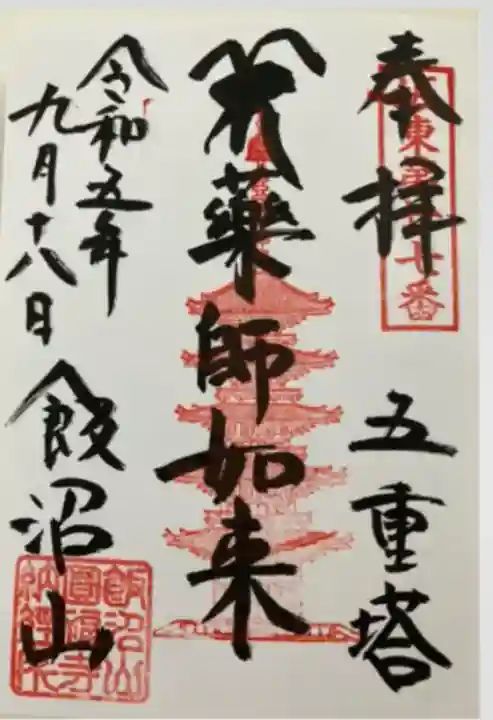 奉拝
五重塔
坂東第廿七番
薬師如来
令和五年
九月十八日
飯沼山
飯沼山
圓福寺
納経朱